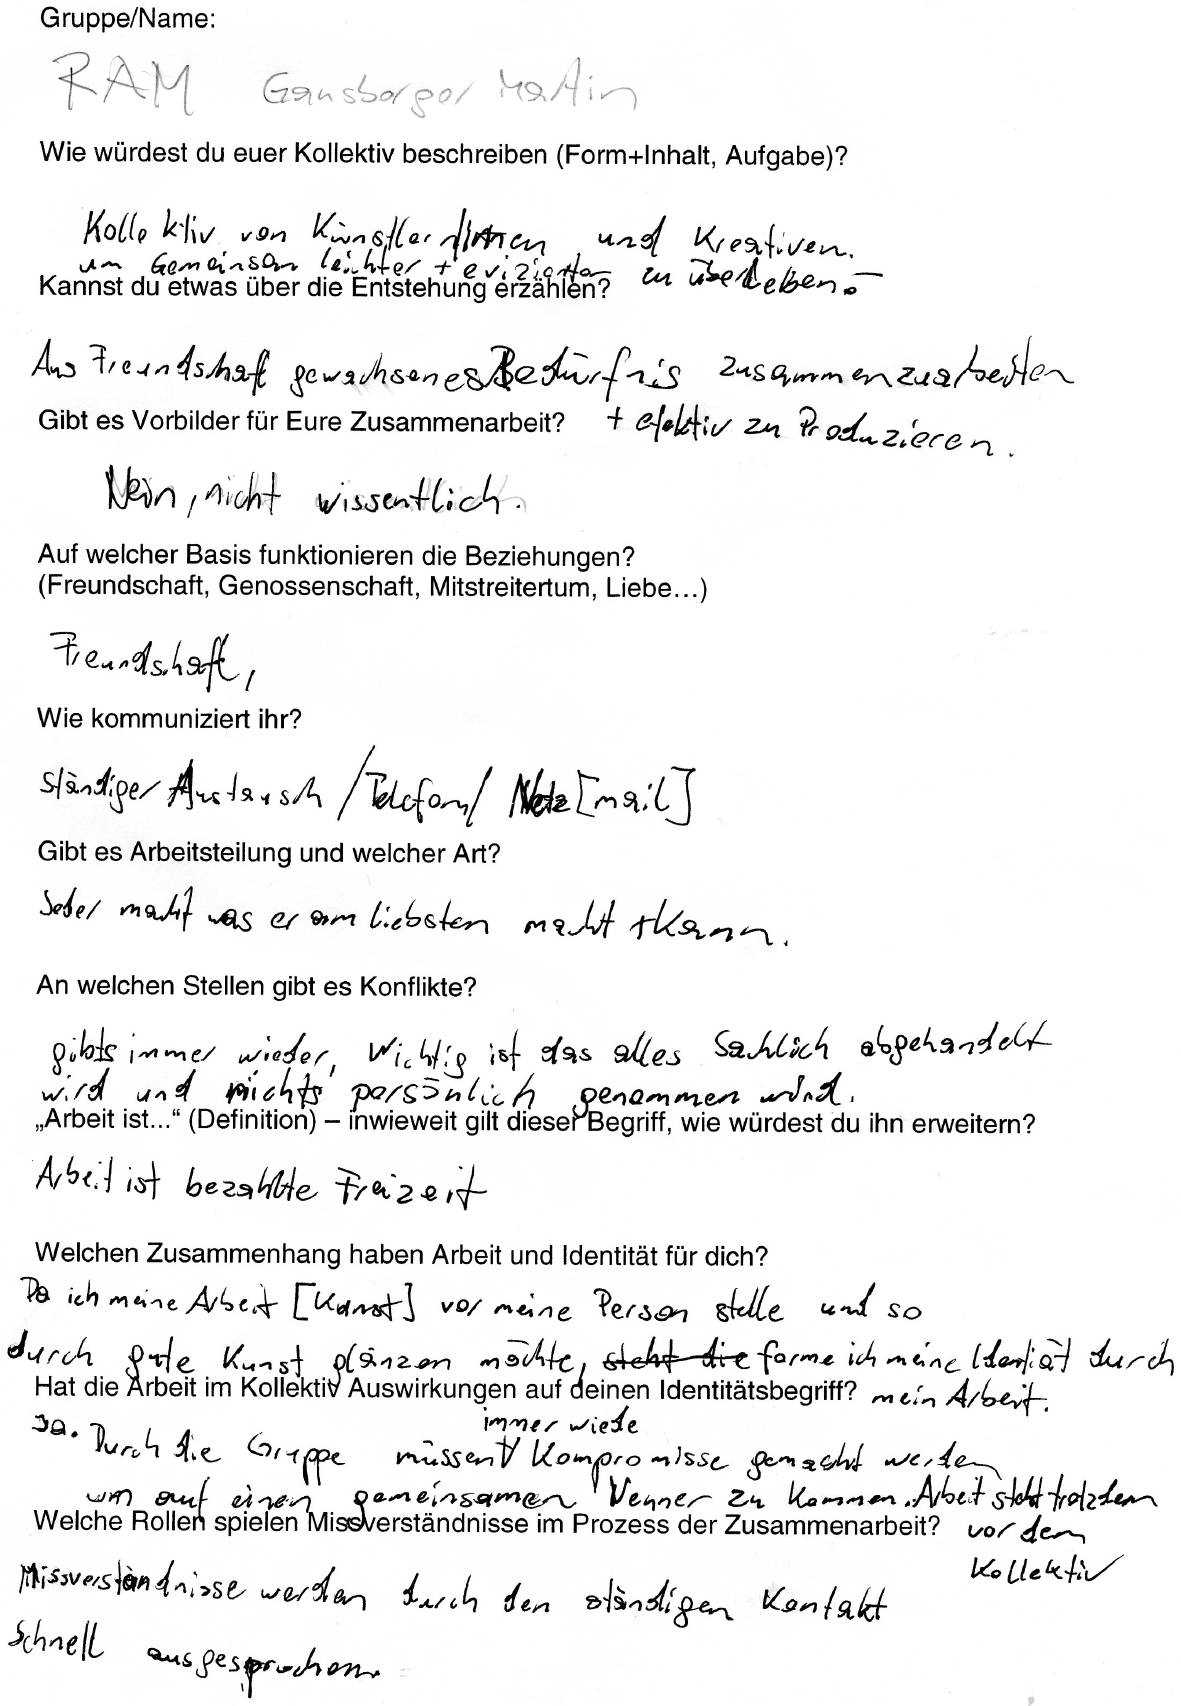 Gruppe/Name:
RAM Gansborgor Martin
Wie würdest du euer Kollektiv beschreiben (Form+Inhalt, Aufgabe)?
Kollektiv von Künstlern und Kreativen.
um Gemeinsam leichter + evizienter zu überleben.
Kannst du etwas über die Entstehung erzählen?
Aus Freundshaft gewachsenes Bedürfnis zusammenzuarbeiten
+ efektiv zu Produzieren.
Gibt es Vorbilder für Eure Zusammenarbeit?
Nein, nicht wissentlich.
Auf welcher Basis funktionieren die Beziehungen?
(Freundschaft, Genossenschaft, Mitstreitertum, Liebe...)
Freundshaft,
Wie kommuniziert ihr?
ständiger Austausch / Telefon / Netz [mail]
Gibt es Arbeitsteilung und welcher Art?
Jeder macht was er am liebsten macht + kann.
An welchen Stellen gibt es Konflikte?
gibts immer wieder, Wichtig ist das alles Sachlich abgehandelt
wird und nichts persönlich genommen wird.
„Arbeit ist...“ (Definition) – inwieweit gilt dieser Begriff, wie würdest du ihn erweitern?
Arbeit ist bezahlte Freizeit
Welchen Zusammenhang haben Arbeit und Identität für dich?
Da ich meine Arbeit [Kunst] vor meine Person stelle und so
durch gute Kunst glänzen möchte, steht die forme ich meine Identiät durch
mein Arbeit.
Hat die Arbeit im Kollektiv Auswirkungen auf deinen Identitätsbegriff?
Ja. Durch die Gruppe müssen immer wiede Kompromisse gemacht werden
um auf einen gemeinsamen Nenner zu kommen. Arbeit steht trotzdem
vor dem
Kollektiv
Welche Rollen spielen Missverständnisse im Prozess der Zusammenarbeit?
Missverständnisse werden durch den ständigen Kontakt
Schnell ausgesprochen.